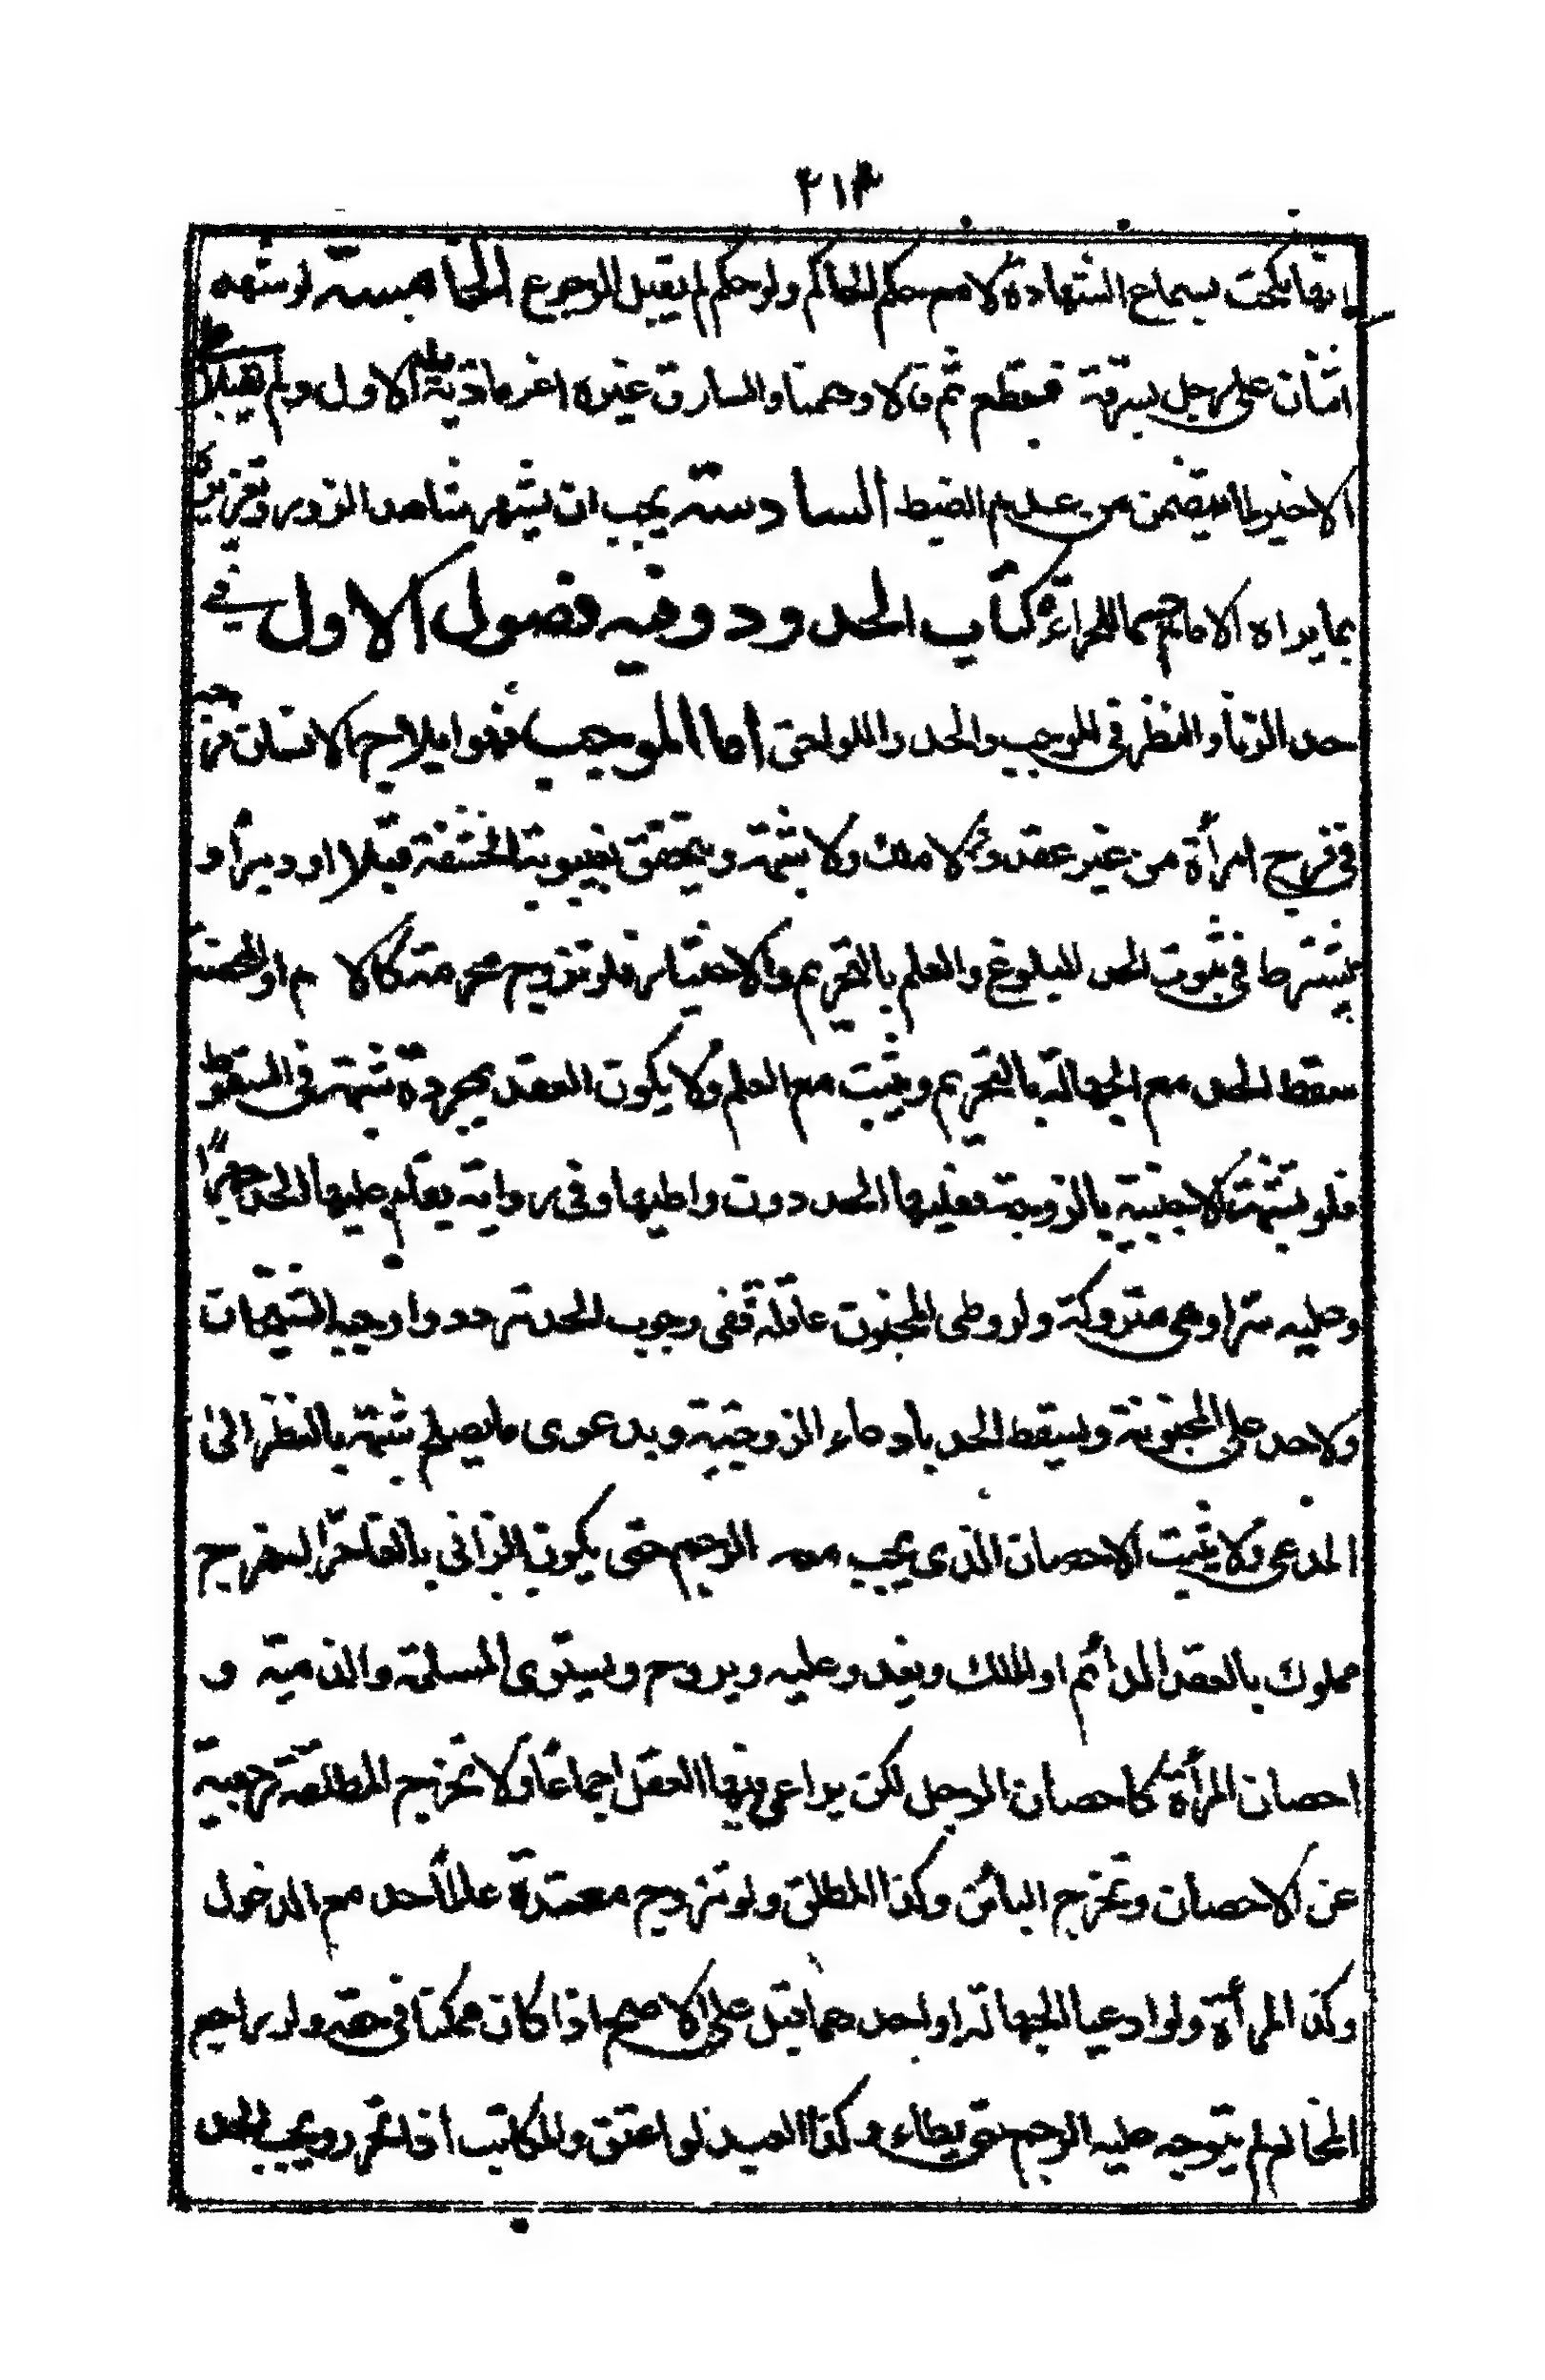 ٢١٣
انها تكمت بسماع الشهادة لا مع حكم الحاكم ولو حكم لم يقبل الرجوع الخامسة لو شهد
اثنان على رجل بسرقة فقطع ثم قالا وهمنا والسارق غيره اغرما دية يد الاول ولم يقبلا
الاخير لما يتضمن من عدم الضبط السادسة يجب ان يشهر شاهد الزور وتعزيره
بما يراه الامام حسما للجرأة كتاب الحدود وفيه فصول الاول في
حد الزنا والنظر في الموجب والحد واللواحق اما الموجب فهو ايلاج الانسان فرجه
في فرج امرأة من غير عقد ولا ملك ولا شبهة ويتحقق بغيبوبة الحشفة قبلا او دبرا و
يشترط في ثبوت الحد البلوغ والعلم بالتحريم والاختيار فلو تزوج محرمة كالام او المحصنة
سقط الحد مع الجهالة بالتحريم ويثبت مع العلم ولا يكون العقد بمجرده شبهة في السقوط
فلو تشبهت الاجنبية بالزوجة فعليها الحد دون واطيها وفي رواية يقام عليها الحد جهرا
وعليه سرا وهي متروكة ولو وطى المجنون عاقلة ففي وجوب الحد تردد واوجبه الشيخان
ولا حد على المجنونة ويسقط الحد بادعاء الزوجية وبدعوى ما يصلح شبهة بالنظر الى
المدعي ولا يثبت الاحصان الذي يجب معه الرجم حتى يكون الزاني بالغا حرا له فرج
مملوك بالعقد الدائم او الملك ويغدو عليه ويروح ويستوى المسلمة والذمية و
احصان المرأة كاحصان الرجل لكن يراعى فيها العقل اجماعا ولا تخرج المطلقة رجعية
عن الاحصان وتخرج البائن وكذا المطلق ولو تزوج معتدة عالما حد مع الدخول
وكذا المرأة ولو ادعيا الجهالة او احدهما قبل على الاصح اذا كان ممكنا في حقه ولو راجع
المخالع لم يتوجه عليه الرجم حتى يطاء وكذا العبد لو اعتق والمكاتب اذا تحرر ويجب الحد